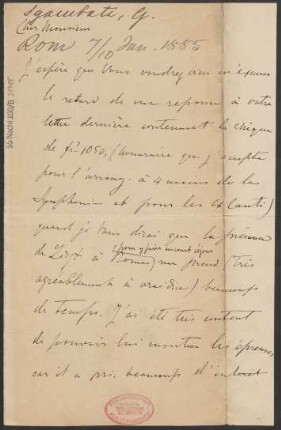 Sgambati, G.
Cher Monsieur
Rom 7/10 Jan. 1885
J'espère que vous voudrez bien m'excuser
le retard de ma reponse à votre
lettre dernière contenant le chèque
de fr 1050. (honoraire que j'accepte
pour l'arrang. à 4 mains de la
Symphonie et pour les Canti)
quand je vous dirai que la présence
de Liszt à Rome
me prend (très
agréablement à vrai dire) beaucoup
de temps. J'ai été très content
de pouvoir lui montrer les épreuves,
car il a pris beaucoup d'intérêt